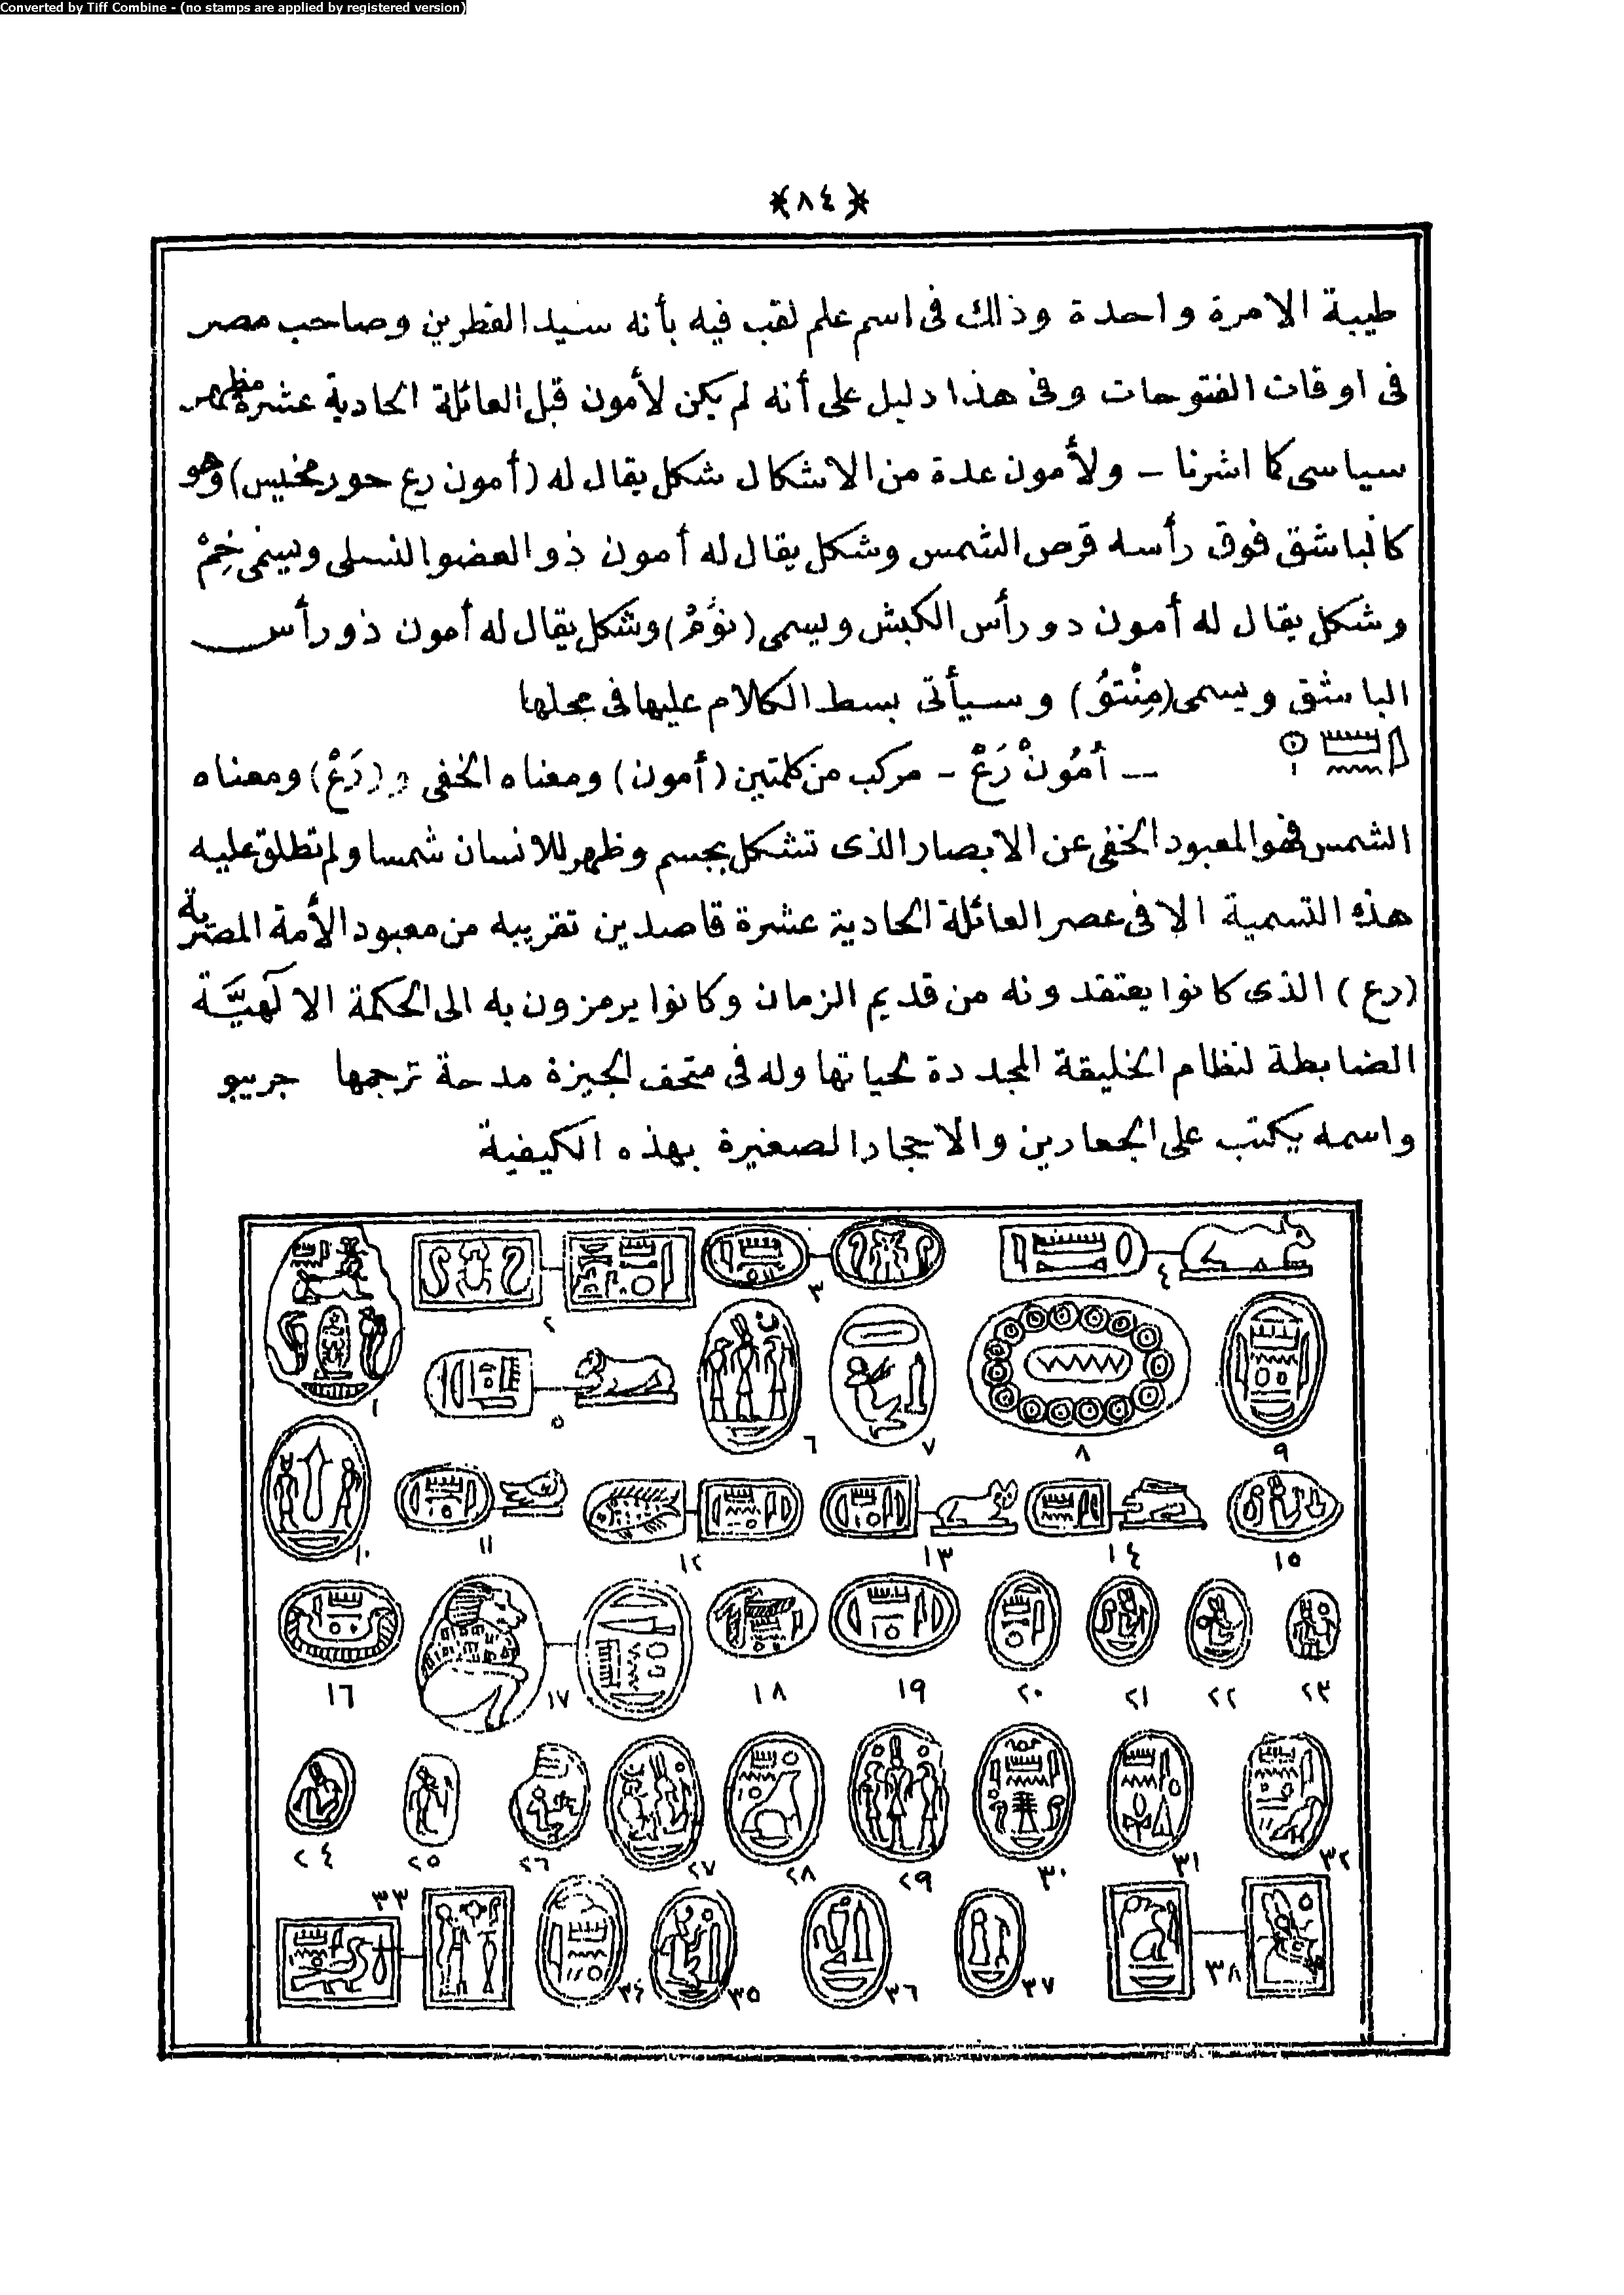 Converted by Tiff Combine - (no stamps are applied by registered version)
﴿٨٤﴾
طيبة الامرة واحدة وذلك فى اسم علم لقب فيه بأنه سيد القطرين وصاحب مصر
فى اوقات الفتوحات وفى هذا دليل على أنه لم يكن لأمون قبل العائلة الحادية عشرة مظهر
سياسى كما اشرنا – ولأمون عدة من الاشكال شكل يقال له (أمون رع حورمخيس) وهو
كالباشق فوق رأسه قرص الشمس وشكل يقال له أمون ذو العضو النسلى ويسمى خِمْ
وشكل يقال له أمون دو رأس الكبش ويسمى (نوُمْ) وشكل يقال له أمون ذو رأس
الباشق ويسمى (مِنْتوُ) وسيأتى بسط الكلام عليها فى محلها
— أمُونْ رَعْ – مركب من كلمتين (أمون) ومعناه الخفى و(رَعْ) ومعناه
الشمس فهو المعبود الخفى عن الابصار الذى تشكل بجسم وظهر للانسان شمسا ولم تطلق عليه
هذه التسمية الا فى عصر العائلة الحادية عشرة قاصدين تقريبه من معبود الأمة المصرية
(رع) الذى كانوا يعتقدونه من قديم الزمان وكانوا يرمزون به الى الحكمة الالٓهيَّة
الضابطة لنظام الخليقة المجددة لحياتها وله فى متحف الجيزة مدحة ترجمها جريبو
واسمه يكتب على الجعارين والاحجار الصغيرة بهذه الكيفية
١ ٢ ٣ ٤
٥ ٦ ٧ ٨ ٩
١٠ ١١ ١٢ ١٣ ١٤ ١٥
١٦ ١٧ ١٨ ١٩ ٢٠ ٢١ ٢٢ ٢٣
٢٤ ٢٥ ٢٦ ٢٧ ٢٨ ٢٩ ٣٠ ٣١ ٣٢
٣٣ ٣٤ ٣٥ ٣٦ ٣٧ ٣٨